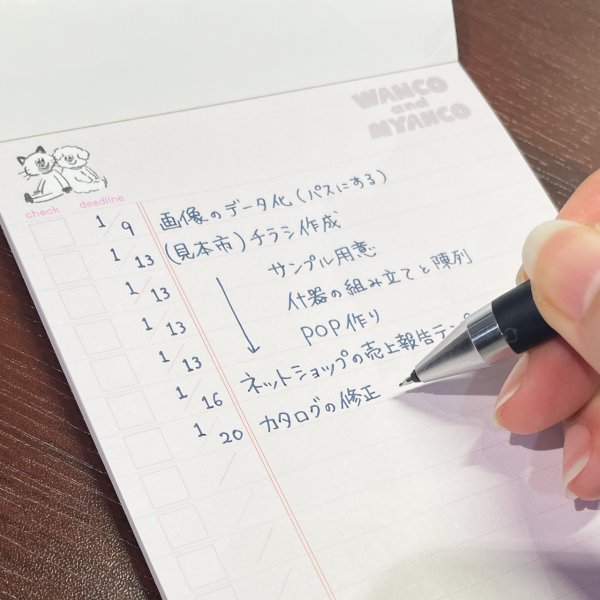 WANCO
and
NYANCO
check deedline
1/9 画像のデータ化(パスにする)
1/13 (見本市)チラシ作成
1/13 サンプル用意
1/13 什器の組み立てと陳列
1/13 POP作り
1/16 ネットショップの売上報告テンプ
1/20 カタログの修正